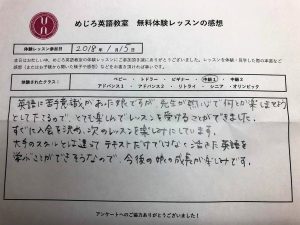 めじろ英語教室 無料体験レッスンの感想
体験レッスン参加日 2018年 1月 15日
体験されたクラス：
ベビー ・ トドラー ・ ビギナー ・ 中級1 ・ 中級2
アドバンス1 ・ アドバンス2 ・ リトライ ・ シニア ・ オリンピック
英語に苦手意識があった娘ですが、先生が熱心で何とか楽しませよう
として下さるので、とても楽しんでレッスンを受けることができました。
すぐに入会を決め、次のレッスンを楽しみにしています。
大手のスクールとは違ってテキストだけではなく活きた英語を
学ぶことができそうなので、今後の娘の成長が楽しみです。
アンケートへのご協力ありがとうございました！